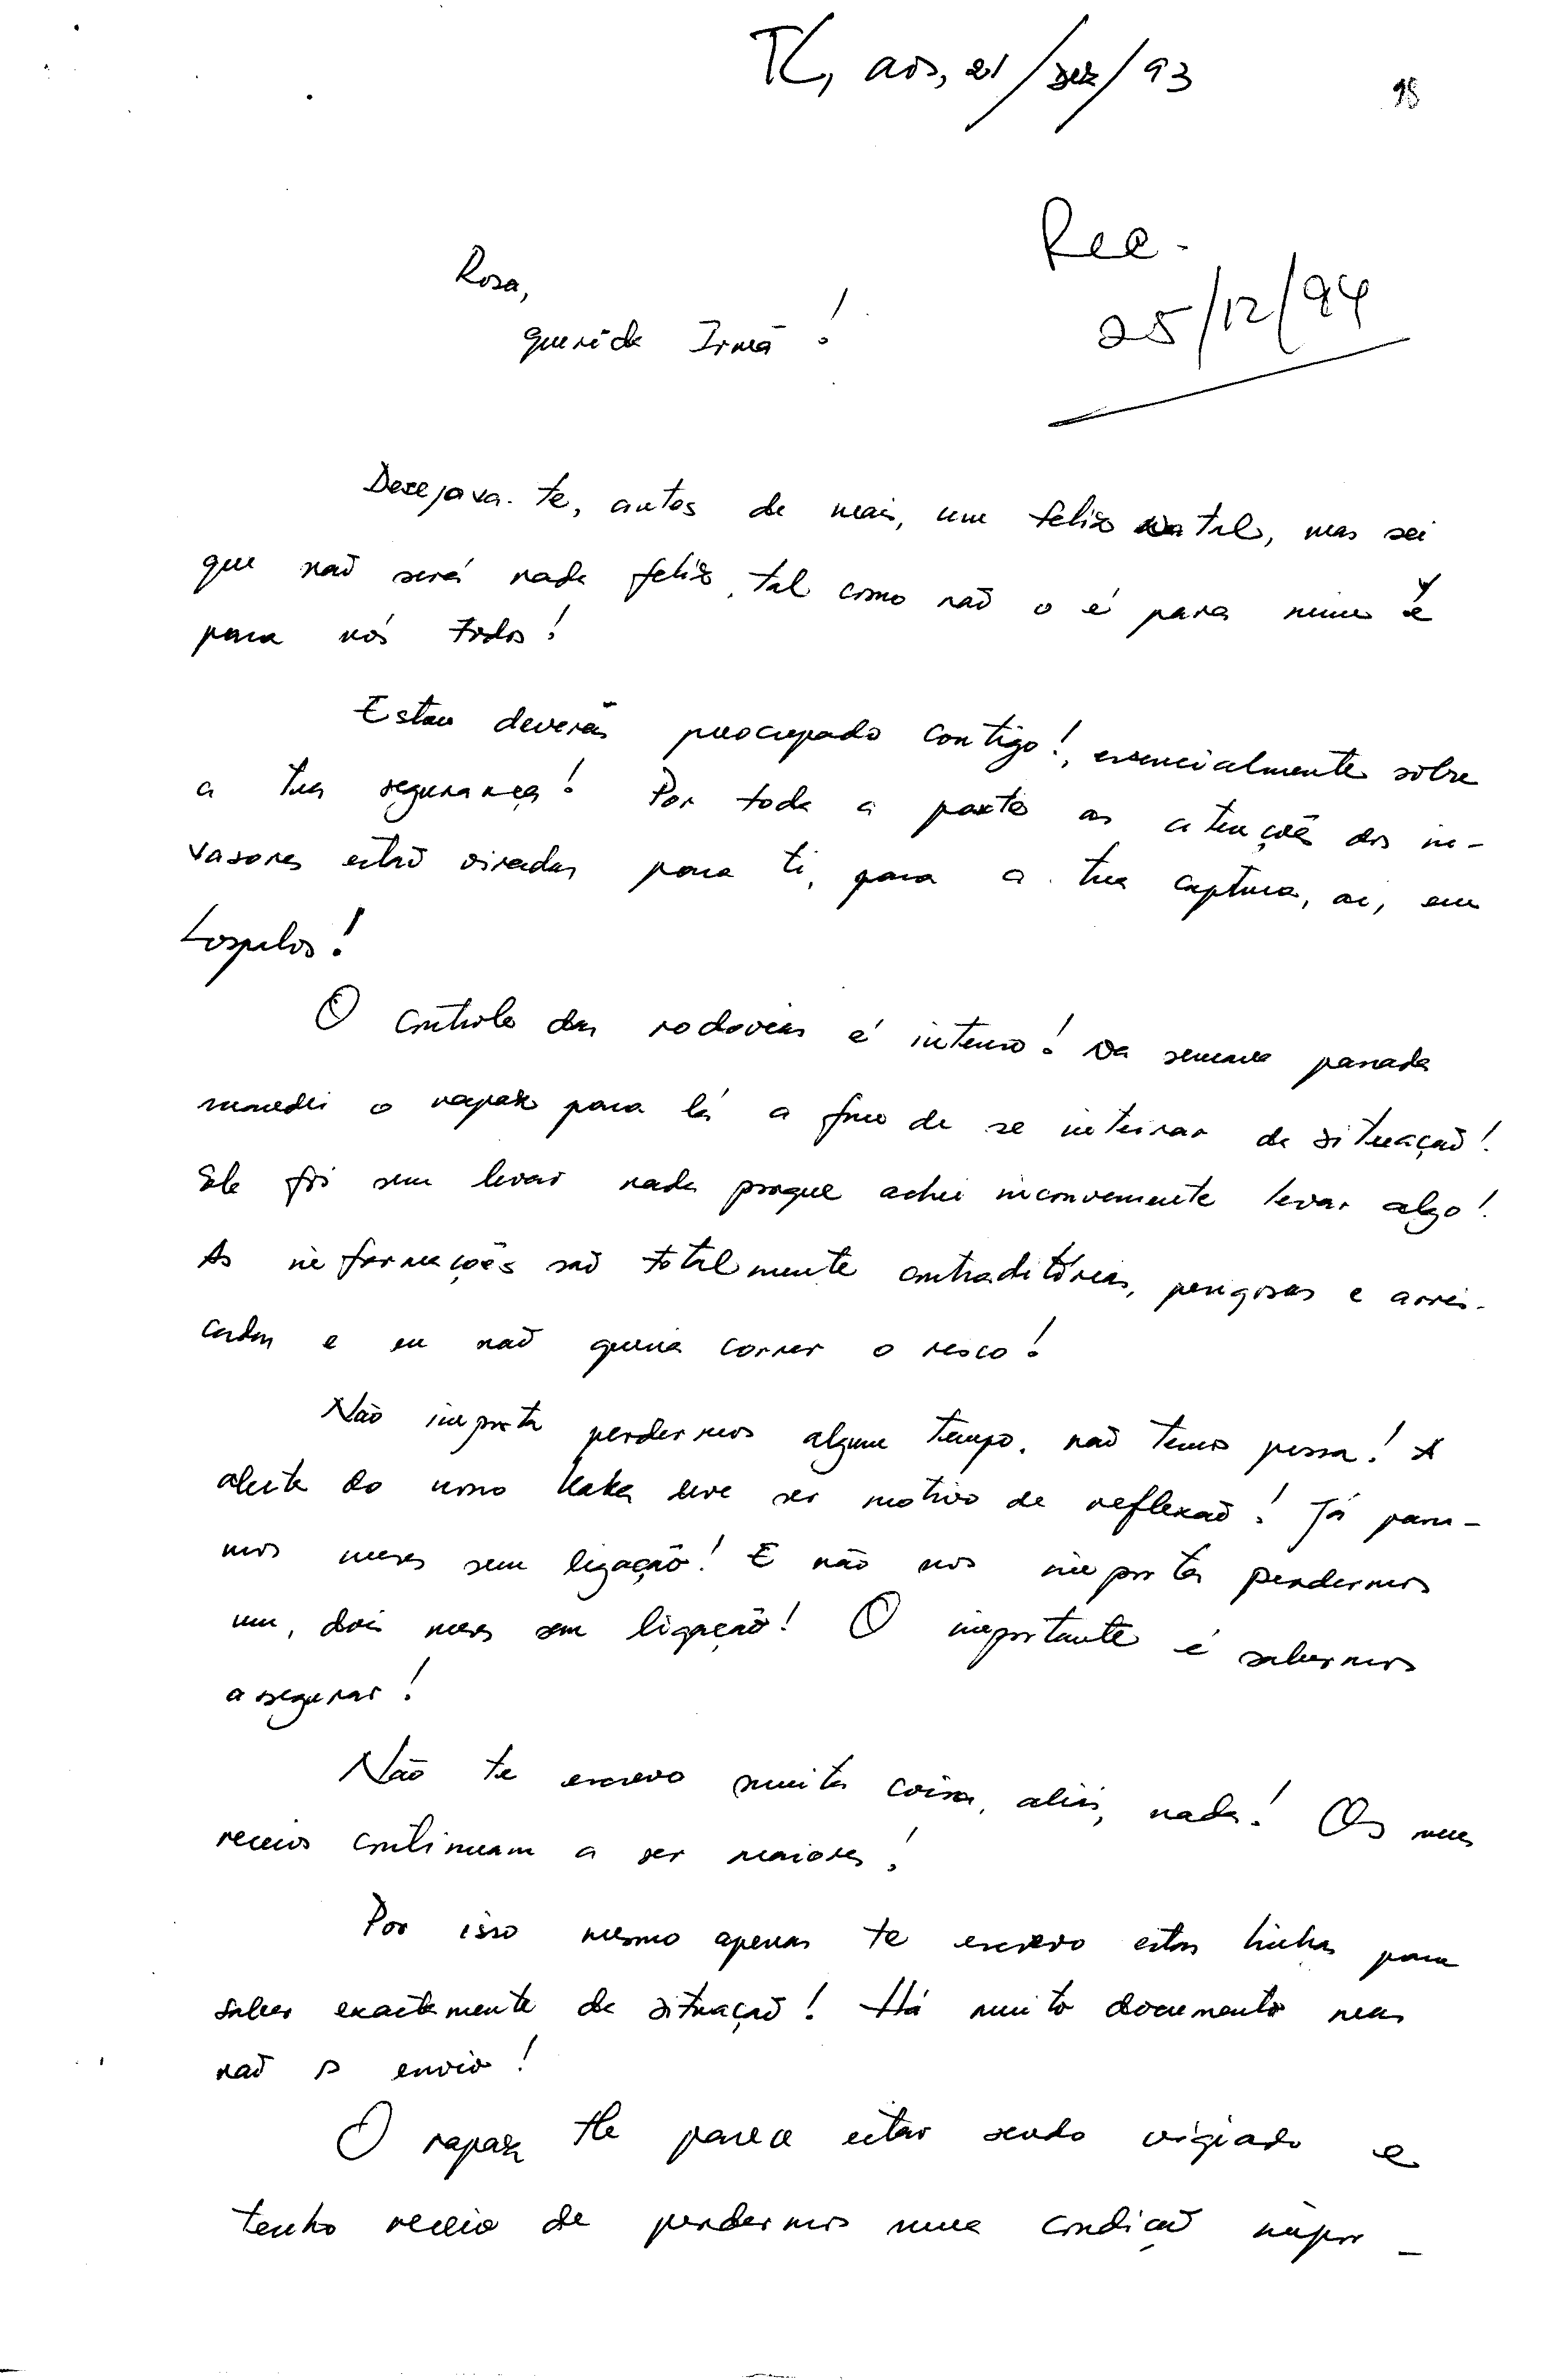 TL, aos, 21/Dez/93
98
Rec.
25/12/94
Rosa,
querida Irmã!
Desejava-te, antes de mais, um feliz Natal, mas sei
que naõ será nada feliz, tal como naõ o é para mim e
para nós todos!
Estou deveras preocupado contigo!, essencialmente sobre
a tua segurança! Por toda a parte as atenções dos in-
vasores estaõ viradas para ti, para a tua captura, aí, em
Lospalos!
O controle das rodovias é intenso! Na semana passada
mandei o rapaz para lá a fim de se inteirar da situaçaõ!
Ele foi sem levar nada porque achei inconveniente levar algo!
As informações saõ totalmente contraditórias, perigosas e arris-
cadas e eu naõ queria correr o risco!
Não importa perdermos algum tempo, naõ temos pressa! A
alerta do nosso Kaka deve ser motivo de reflexaõ! Já passa-
mos meses sem ligação! E não nos importa perdermos
um, dois meses sem ligaçaõ! O importante é sabermos
assegurar!
Não te escrevo muita coisa, aliás, nada! Os meus
receios continuam a ser maiores!
Por isso mesmo apenas te escrevo estas linhas para
saber exactamente da situaçaõ! Há muito documento mas
naõ o envio!
O rapaz parece estar sendo vigiado e
tenho receio de perdermos uma condiçaõ impor-